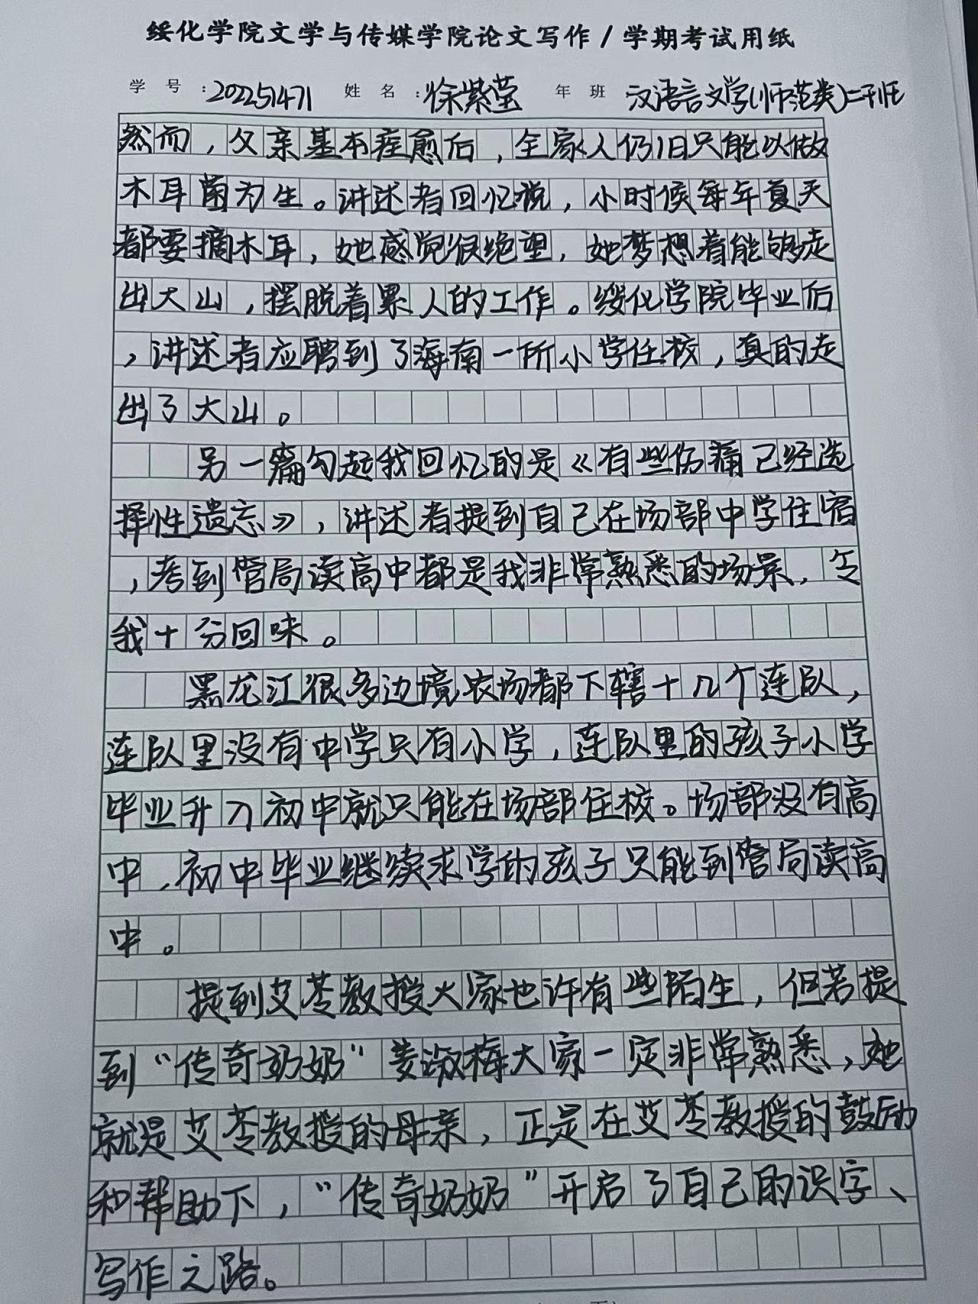 绥化学院文学与传媒学院论文写作/学期考试用纸
学号:202251471 姓名:徐紫莹 年班 汉语言文学(师范类)二班
然而,父亲基本痊愈后,全家人仍旧只能以做
木耳菌为生。讲述者回忆说,小时候每年夏天
都要摘木耳,她感觉很绝望,她梦想着能够走
出大山,摆脱着累人的工作。绥化学院毕业后
,讲述者应聘到了海南一所小学任校,真的走
出了大山。
另一篇勾起我回忆的是《有些伤痛已经选
择性遗忘》,讲述者提到自己在场部中学住宿
,考到管局读高中都是我非常熟悉的场景,令
我十分回味。
黑龙江很多边境农场都下辖十几个连队,
连队里没有中学只有小学,连队里的孩子小学
毕业升入初中就只能在场部住校。场部没有高
中,初中毕业继续求学的孩子只能到管局读高
中。
提到艾苓教授大家也许有些陌生,但若提
到“传奇奶奶”姜淑梅大家一定非常熟悉,她
就是艾苓教授的母亲,正是在艾苓教授的鼓励
和帮助下,“传奇奶奶”开启了自己的识字、
写作之路。